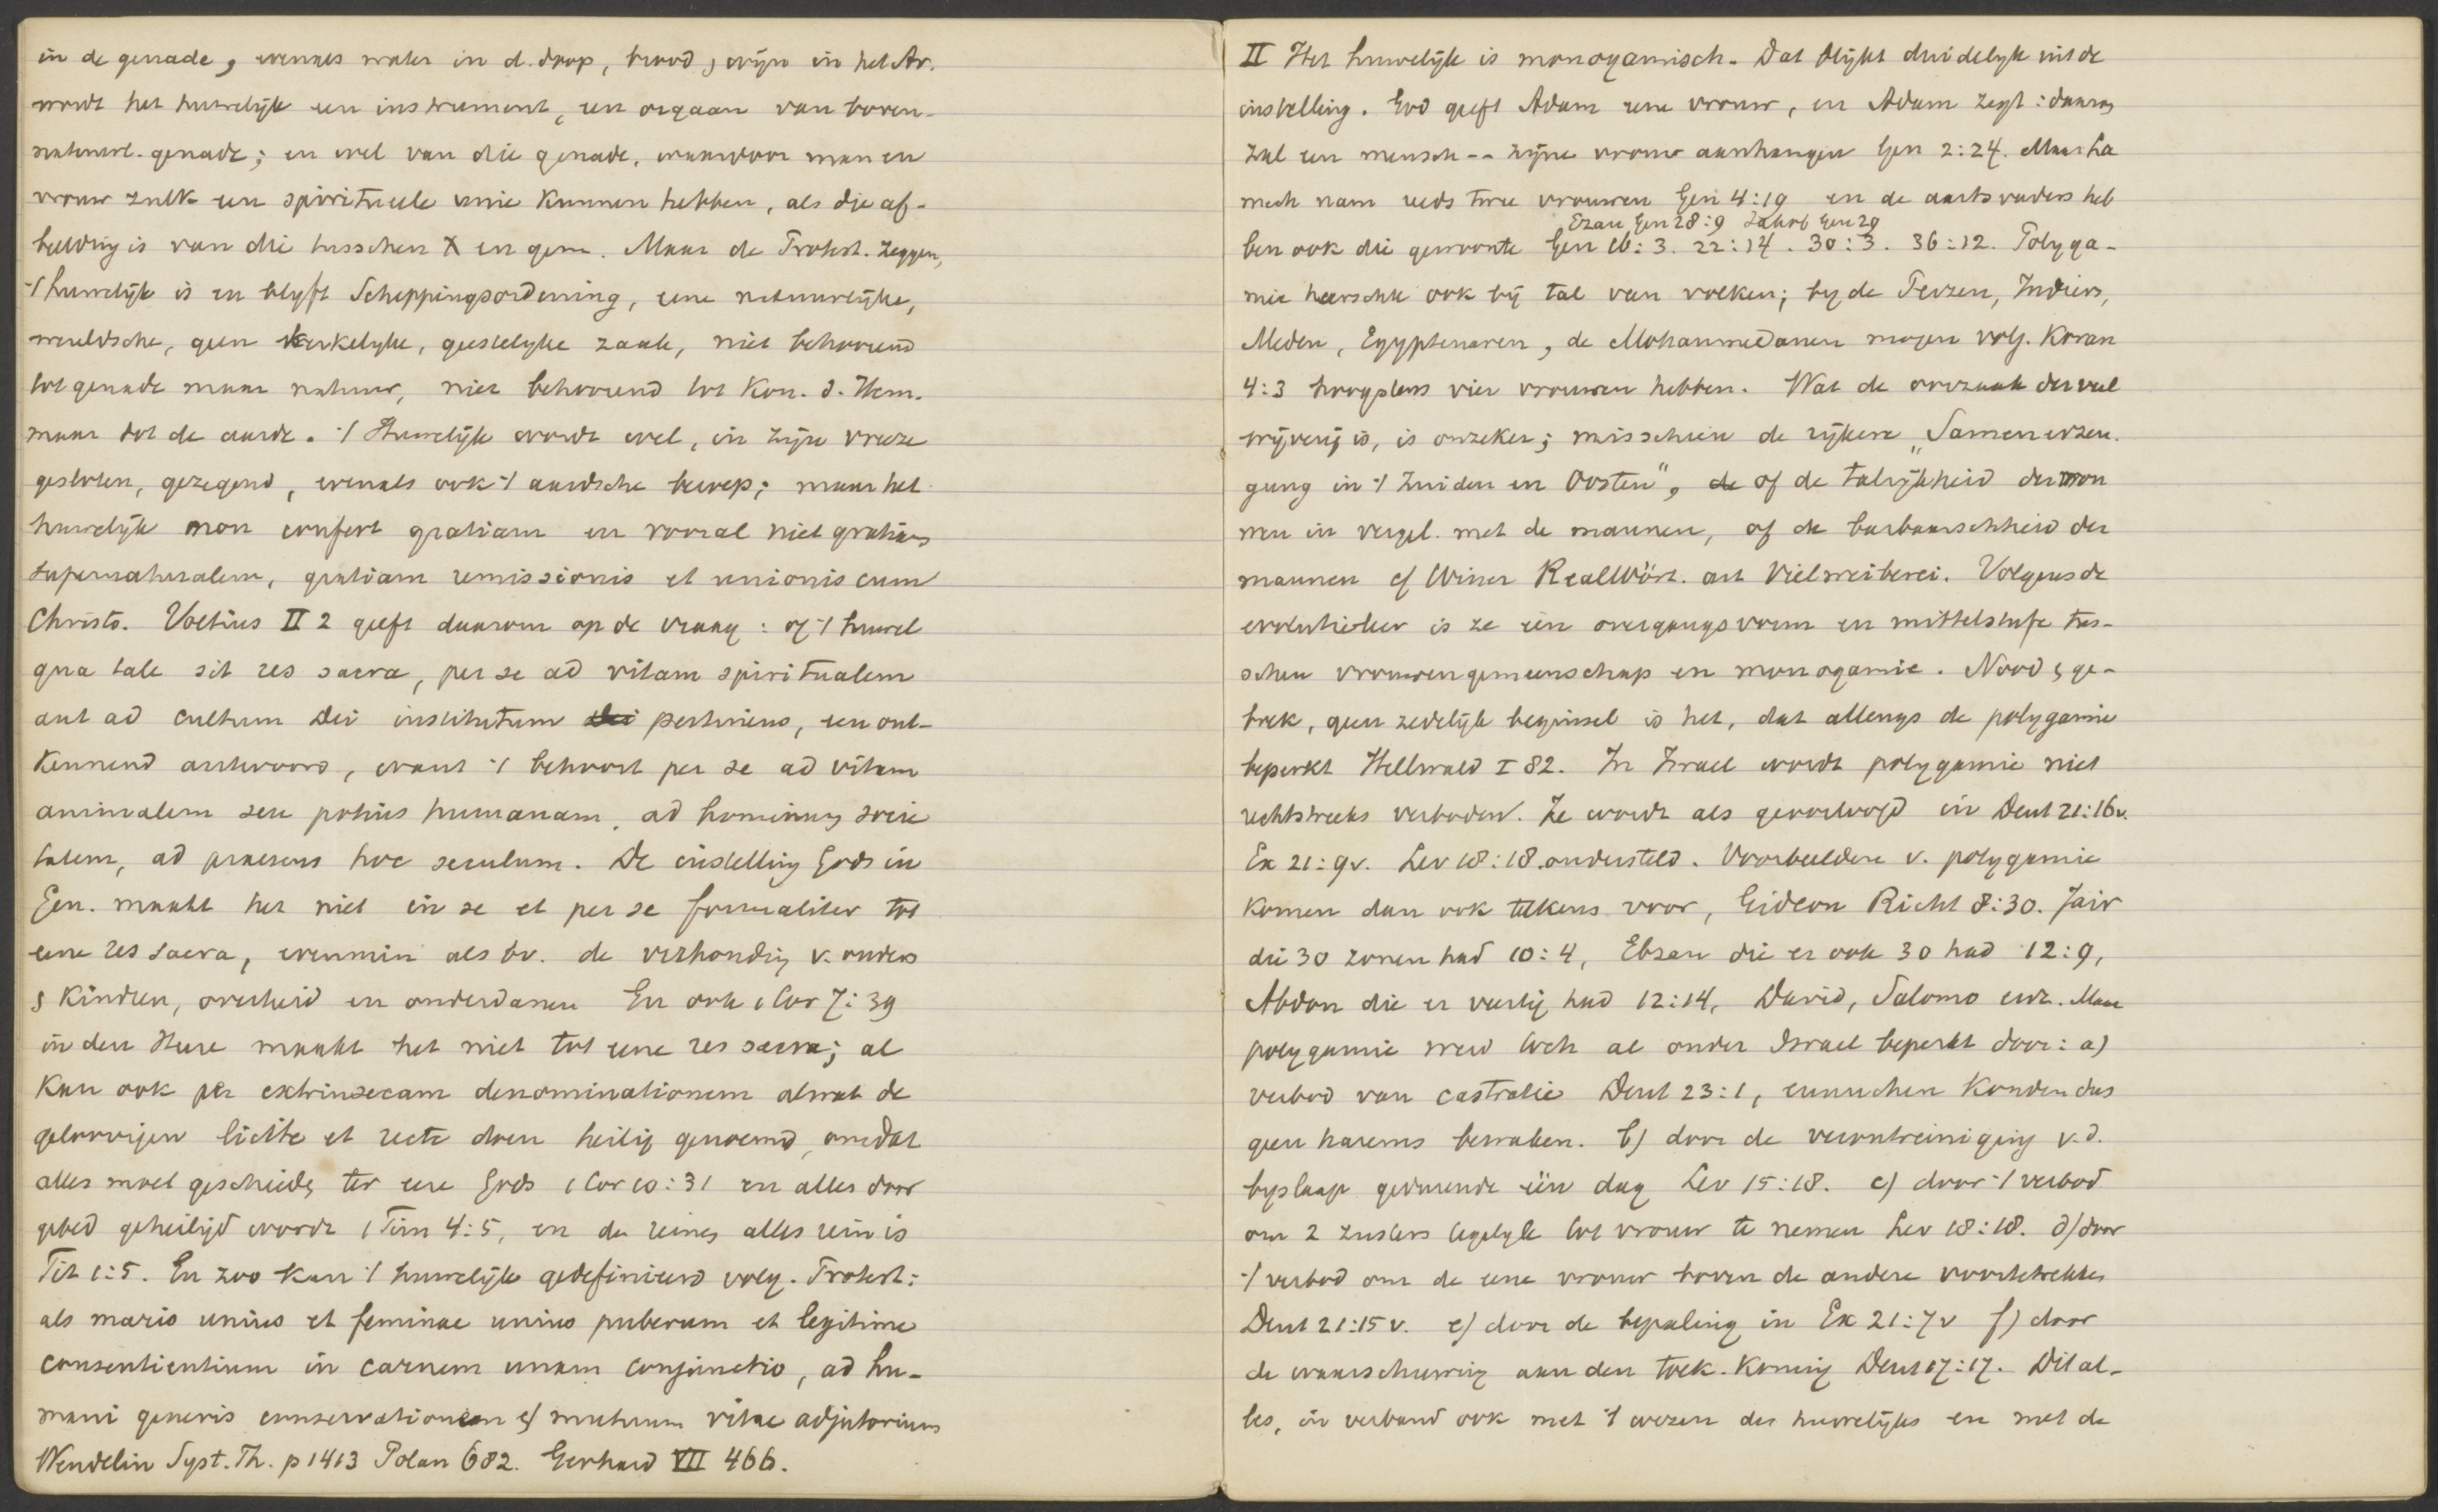 in de genade, evenals water in d. doop, brood, wijn in het Av.
wordt het huwelijk een instrument, een orgaan van boven-
natuurl. genade; en wel van die genade, waardoor man en
vrouw zulk een spiritueele unie kunnen hebben, als die af-
beelding is van die tusschen X en gem. Maar de Protest. zeggen,
't huwelijk is en blyft Scheppingsordening, eene natuurlijke,
wereldsche, geen kerkelyke, geestelyke zaak, niet behoorend
tot genade maar natuur, niet behoorend tot Kon. d. Hem.
maar tot de aarde. 't Huwelijk wordt wel, in zijn vreeze
gesloten, gezegend, evenals ook 't aardsche beroep; maar het
huwelijk non confert gratiam en vooral niet gratiam
supernaturalem, gratiam remissionis et unionis cum
Christo. Voetius II 2 geeft daarom op de vraag: of 't huwel
qua tale sit res sacra, per se ad vitam spiritualem
aut ad cultum Dei institutum pertinens, een ont-
kennend antwoord, want 't behoort per se ad vitam
animalem seu potius humanam, ad hominum socie
tatem, ad praesens hoc seculum. De instelling Gods in
Gen. maakt het niet in se et per se formaliter tot
eene res sacra, evenmin als bv. de verhouding v. ouders
& kinderen, overheid en onderdanen En ook 1 Cor 7:39
in den Heere maakt het niet tot eene res sacra; al
kan ook per extrinsecam denominationem alwat de
geloovigen licite et recte doen heilig genoemd, omdat
alles moet geschieden ter eere Gods 1 Cor 10:31 en alles door
gebed geheiligd wordt 1 Tim 4:5, en den reinen alles rein is
Tit 1:5. En zoo kan 't huwelijk gedefinieerd volg. Protest:
als maris unius et feminae unius puberum et legitime
consentientium in carnem unam conjunctio, ad hu-
mani generis conservationem et mutuum vitae adjutorium
Wendelin Syst. Th. p 1413 Polan 682. Gerhard VII 466.
II Het huwelijk is monogamisch. Dat blijkt duidelyk uit de
instelling. God geeft Adam eene vrouw, en Adam zegt: daarom
zal een mensch -- zijne vrouw aanhangen Gen 2:24. Maar La
mech nam reeds twee vrouwen Gen 4:19 en de aartsvaders heb
Ezau Gen 28:9 Jakob Gen 29
ben ook die gewoonte Gen 16:3. 22:14. 30:3. 36:12. Polyga-
mie heerschte ook bij tal van volken; by de Perzen, Indiers,
Meden, Egyptenaren, de Mohammedanen mogen volg. Koran
4:3 hoogstens vier vrouwen hebben. Wat de oorzaak der veel
wijverij is, is onzeker; misschien de rijkere „Samenerzeu
gung in 't Zuiden en Oosten", de of de talrijkheid der vrou
wen in vergel. met de mannen, of de barbaarschheid der
mannen cf Winer RealWört. art Vielweiberei. Volgens de
evolutieleer is ze een overgangsvorm en mittelstufe tus-
schen vrouwengemeenschap en monogamie. Nood, ge-
brek, geen zedelijk beginsel is het, dat allengs de polygamie
beperkt Hellwald I 82. In Israel wordt polygamie niet
rechtstreeks verboden. Ze wordt als geoorloofd in Deut 21:16v.
Ex 21:9v. Lev 18:18. ondersteld. Voorbeelden v. polygamie
komen dan ook telkens voor, Gideon Richt 8:30. Jair
die 30 zonen had 10:4, Ebzan die er ook 30 had 12:9,
Abdon die er veertig had 12:14, David, Salomo enz. Maar
polygamie werd toch al onder Israel beperkt door: a)
verbod van castratie Deut 23:1, eunuchen konden dus
geen harems bewaken. b) door de verontreiniging v.d.
byslaap gedurende één dag Lev 15:18. c) door 't verbod
om 2 zusters tegelyk tot vrouw te nemen Lev 18:18. d) door
't verbod om de eene vrouw boven de andere voortetrekken
Deut 21:15v. e) door de bepaling in Ex 21:7v f) door
de waarschuwing aan den toek. koning Deut 17:17. Dit al-
les, in verband ook met 't wezen des huwelijks en met de